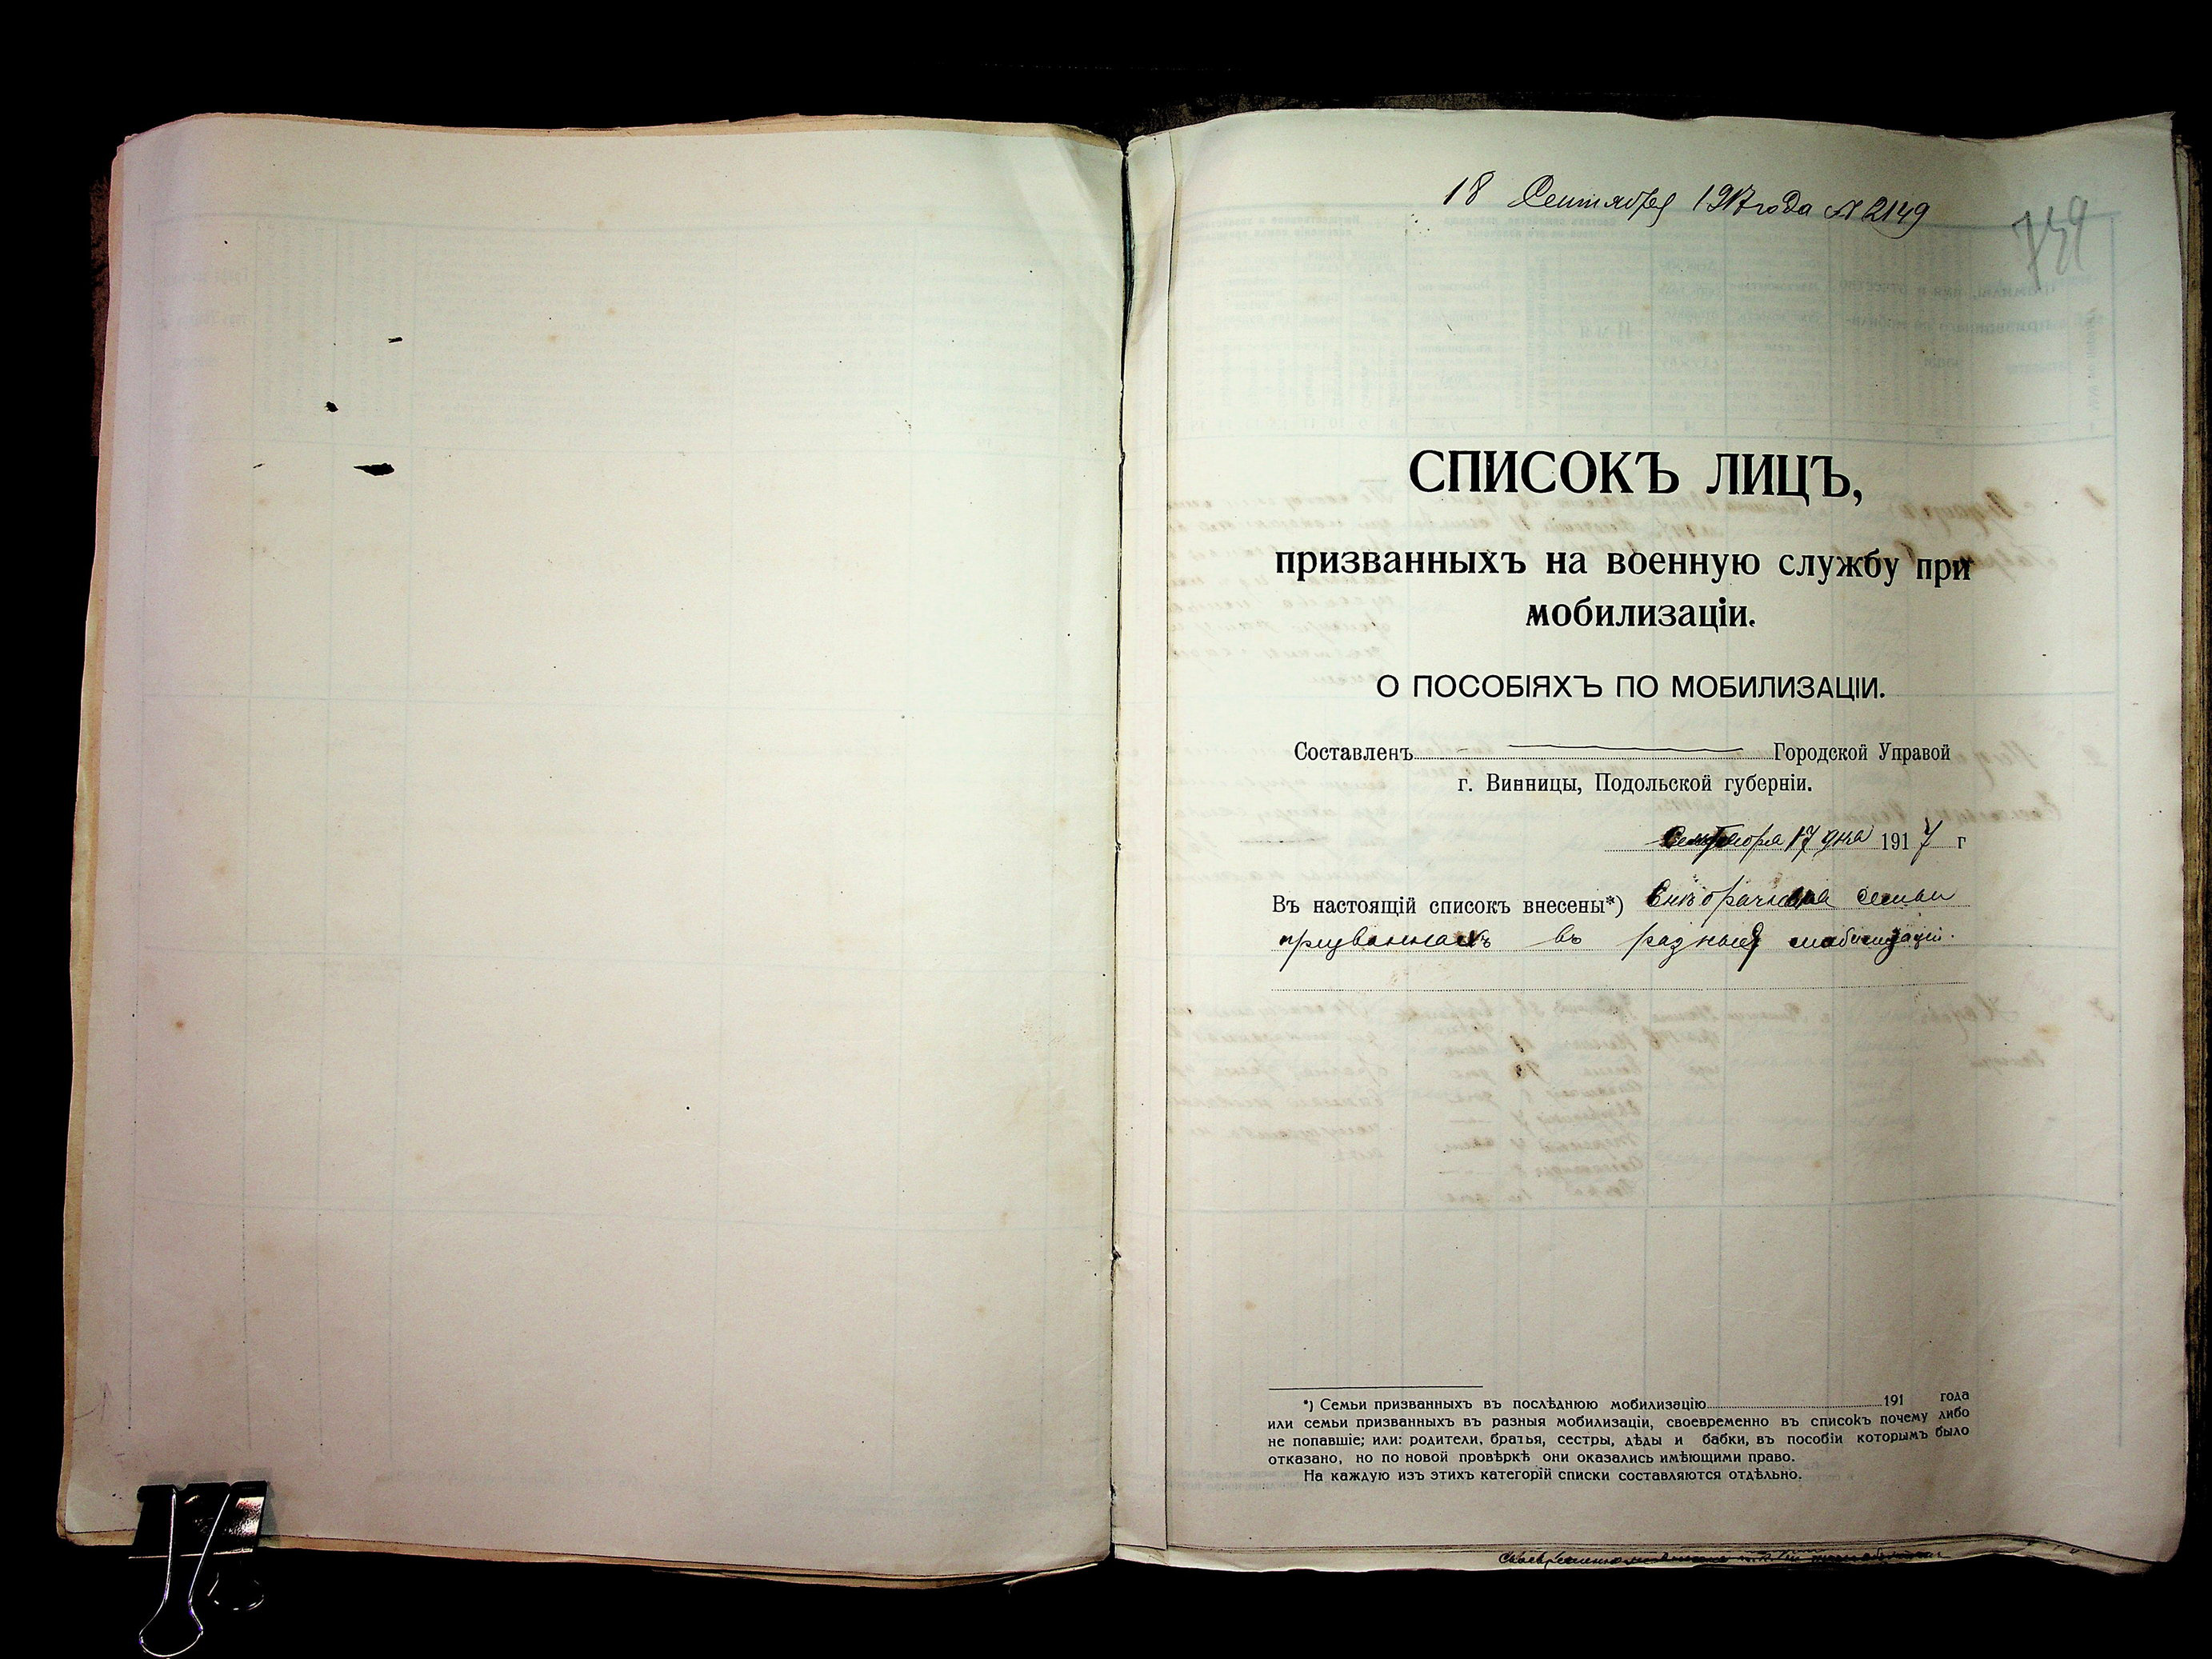 18 Сентября 1917 года № 2149
759
СПИСОКЪ ЛИЦЪ,
призванныхъ на военную службу при
мобилизаціи.
О ПОСОБІЯХЪ ПО МОБИЛИЗАЦІИ.
Составленъ Городской Управой
г. Винницы, Подольской губерніи.
Сентября 17 дня 1917 г
Въ настоящій списокъ внесены*) семьи
призванныхъ въ разныя мобилизаціи.
*) Семьи призванныхъ въ послѣднюю мобилизацію 191 года
или семьи призванныхъ въ разныя мобилизаціи, своевременно въ списокъ почему либо
не попавшіе; или: родители, братья, сестры, дѣды и бабки, въ пособіи которымъ было
отказано, но по новой провѣркѣ они оказались имѣющими право.
На каждую изъ этихъ категорій списки составляются отдѣльно.